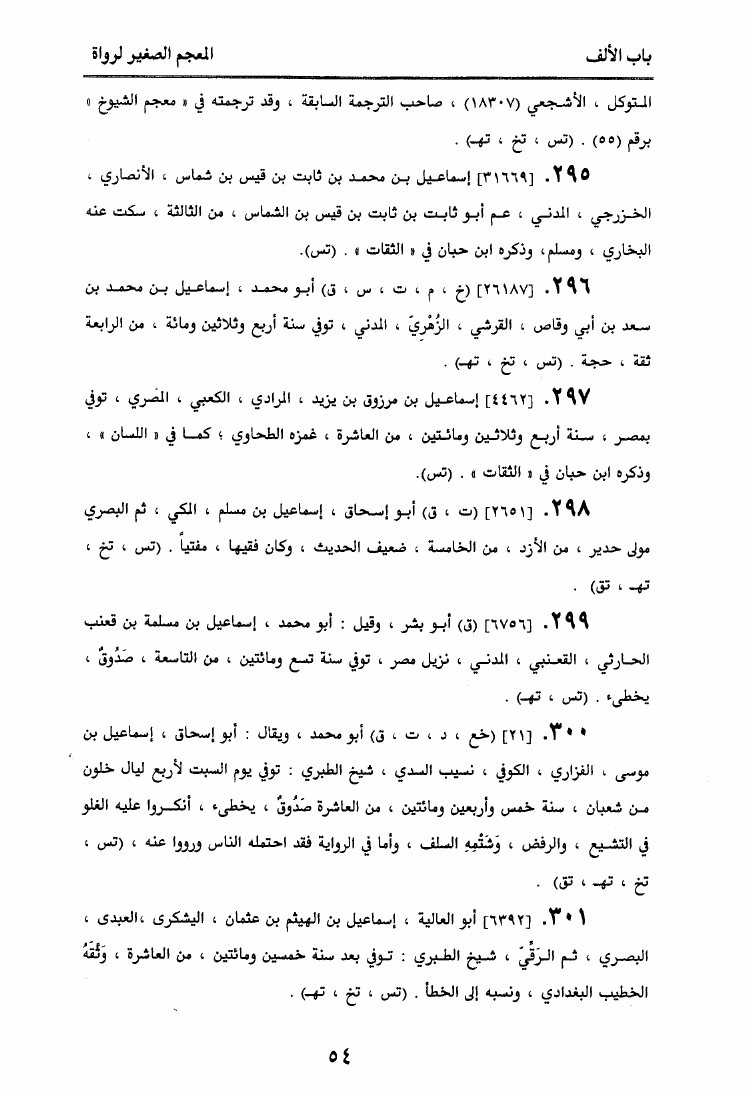 باب الألف
المعجم الصغير لرواة
المتوكل ، الأشجعي (١٨٣٠٧) ، صاحب الترجمة السابقة ، وقد ترجمته في « معجم الشيوخ »
برقم (٥٥) . (تس ، تخ ، تهـ) .
٢٩٥. [٣١٦٦٩] إسماعيل بن محمد بن ثابت بن قيس بن شماس ، الأنصاري ،
الخزرجي ، المدني ، عم أبو ثابت بن ثابت بن قيس بن الشماس ، من الثالثة ، سكت عنه
البخاري ، ومسلم، وذكره ابن حبان في « الثقات » . (تس).
٢٩٦. [٢٦١٨٧] (خ ، م ، ت ، س ، ق) أبو محمد ، إسماعيل بن محمد بن
سعد بن أبي وقاص ، القرشي ، الزُهْرِيّ ، المدني ، توفي سنة أربع وثلاثين ومائة ، من الرابعة
ثقة ، حجة . (تس ، تخ ، تهـ) .
٢٩٧. [٤٤٦٢] إسماعيل بن مرزوق بن يزيد ، المرادي ، الكعبي ، المصري ، توفي
بمصر ، سنة أربع وثلاثين ومائتين ، من العاشرة ، غمزه الطحاوي ؛ كما في « اللسان » ،
وذكره ابن حبان في « الثقات » . (تس).
٢٩٨. [٢٦٥١] (ت ، ق) أبو إسحاق ، إسماعيل بن مسلم ، المكي ، ثم البصري
مولى حدير ، من الأزد ، من الخامسة ، ضعيف الحديث ، وكان فقيها ، مفتياً . (تس ، تخ ،
تهـ ، تق) .
٢٩٩. [٦٧٥٦] (ق) أبو بشر ، وقيل : أبو محمد ، إسماعيل بن مسلمة بن قعنب
الحارثي ، القعنبي ، المدني ، نزيل مصر ، توفي سنة تسع ومائتين ، من التاسعة ، صَدُوقٌ ،
يخطىء . (تس ، تهـ) .
٣٠٠. [٢١] (خع ، د ، ت ، ق) أبو محمد ، ويقال : أبو إسحاق ، إسماعيل بن
موسى ، الفزاري ، الكوفي ، نسيب السدي ، شيخ الطبري : توفي يوم السبت لأربع ليال خلون
من شعبان ، سنة خمس وأربعين ومائتين ، من العاشرة صَدُوقٌ ، يخطىء ، أنكروا عليه الغلو
في التشيع ، والرفض ، وَشَتْمِهِ السلف ، وأما في الرواية فقد احتمله الناس ورووا عنه ، (تس ،
تخ ، تهـ ، تق) .
٣٠١. [٦٣٩٢] أبو العالية ، إسماعيل بن الهيثم بن عثمان ، اليشكرى ،العبدى ،
البصري ، ثم الرَقِّيّ ، شيخ الطبري : توفي بعد سنة خمسين ومائتين ، من العاشرة ، وَثَّقَهُ
الخطيب البغدادي ، ونسبه إلى الخطأ . (تس ، تخ ، تهـ) .
٥٤